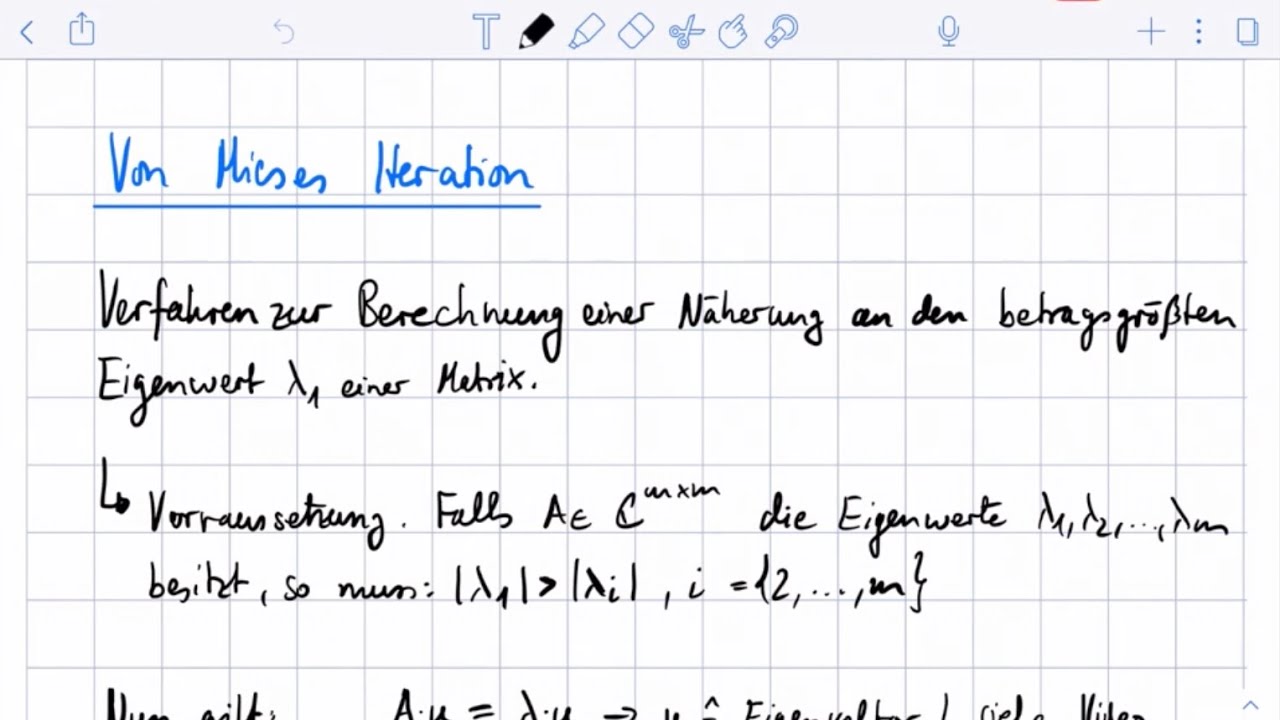 Von Mieses Iteration
Verfahren zur Berechnung einer Näherung an den betragsgrößten
Eigenwert λ₁ einer Matrix.
↳ Vorraussetzung. Falls A ∈ ℂ^{m×m} die Eigenwerte λ₁, λ₂, ..., λₘ
besitzt, so muss: |λ₁| > |λᵢ|, i = {2, ..., m}
Nun gilt: A·v = λ·v → v ≙ Eigenvektor / siehe Video